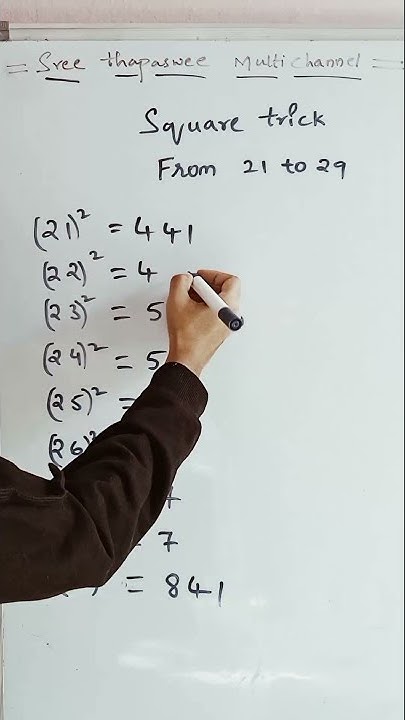 = Sree thapaswee Multi channel =
Square trick
From 21 to 29
(21)² = 441
(22)² = 4
(23)² = 5
(24)² = 5
(25)² =
(26)²
7
= 7
= 841